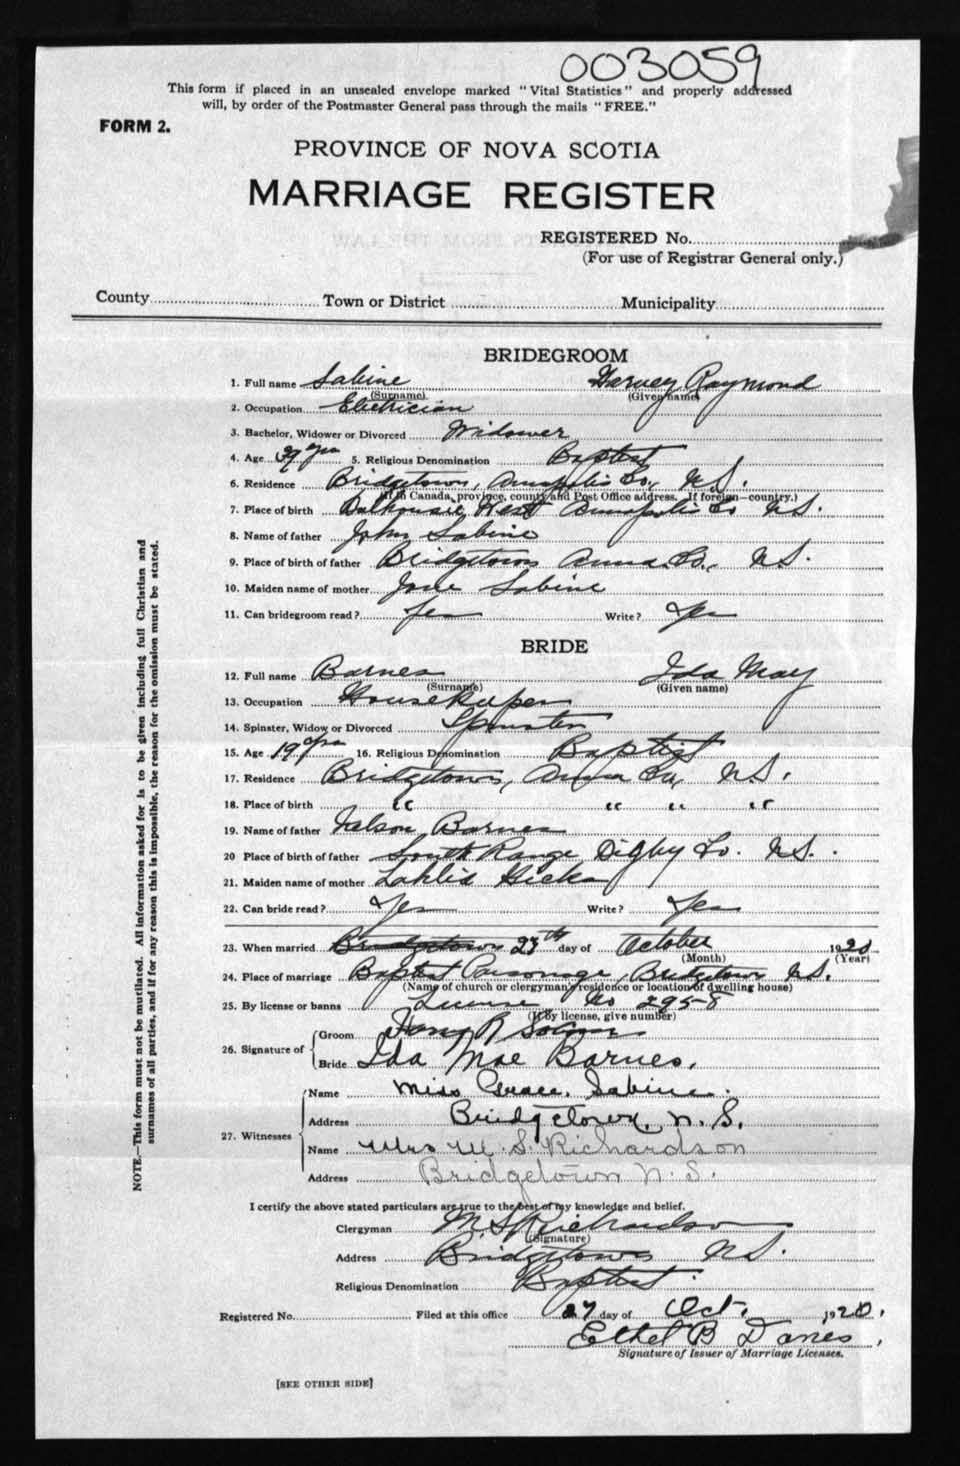 003059
This form if placed in an unsealed envelope marked "Vital Statistics" and properly addressed
will, by order of the Postmaster General pass through the mails "FREE."
FORM 2.
PROVINCE OF NOVA SCOTIA
MARRIAGE REGISTER
REGISTERED No.
(For use of Registrar General only.)
County Town or District Municipality
BRIDEGROOM
1. Full name Sabine Harvey Raymond
(Surname) (Given name)
2. Occupation Electrician
3. Bachelor, Widower or Divorced Widower
4. Age yrs 5. Religious Denomination Baptist
6. Residence Bridgetown, Annapolis Co., N.S.
(If in Canada, province, county and Post Office address. If foreign—country.)
7. Place of birth Dalhousie West Annapolis Co N.S.
8. Name of father John Sabine
9. Place of birth of father Bridgetown Anna. Co., N.S.
10. Maiden name of mother Sabine
11. Can bridegroom read? Yes Write? Yes
BRIDE
12. Full name Barnes Ida May
(Surname) (Given name)
13. Occupation Housekeeper
14. Spinster, Widow or Divorced Spinster
15. Age 19 yrs 16. Religious Denomination Baptist
17. Residence Bridgetown, Anna Co, N.S.
18. Place of birth " " " "
19. Name of father Barnes
20 Place of birth of father South Range Digby Co. N.S.
21. Maiden name of mother Hicks
22. Can bride read? Yes Write? Yes
23. When married Bridgetown 27th day of October 1920
(Month) (Year)
24. Place of marriage Baptist Parsonage, Bridgetown N.S.
(Name of church or clergyman's residence or location of dwelling house)
25. By license or banns License No 2958
(If by license, give number)
26. Signature of
Groom R Sabine
Bride Ida Mae Barnes.
27. Witnesses
Name Miss Grace Sabine.
Address Bridgetown, N.S.
Name Mrs M. S. Richardson
Address Bridgetown N.S.
I certify the above stated particulars are true to the best of my knowledge and belief.
Clergyman M S Richardson
(Signature)
Address Bridgetown N.S.
Religious Denomination Baptist.
Registered No. Filed at this office 27 day of Oct. 1920.
Ethel B Davies.
Signature of Issuer of Marriage Licenses.
[SEE OTHER SIDE]
NOTE.—This form must not be mutilated. All information asked for is to be given including full Christian and
surnames of all parties, and if for any reason this is impossible, the reason for the omission must be stated.